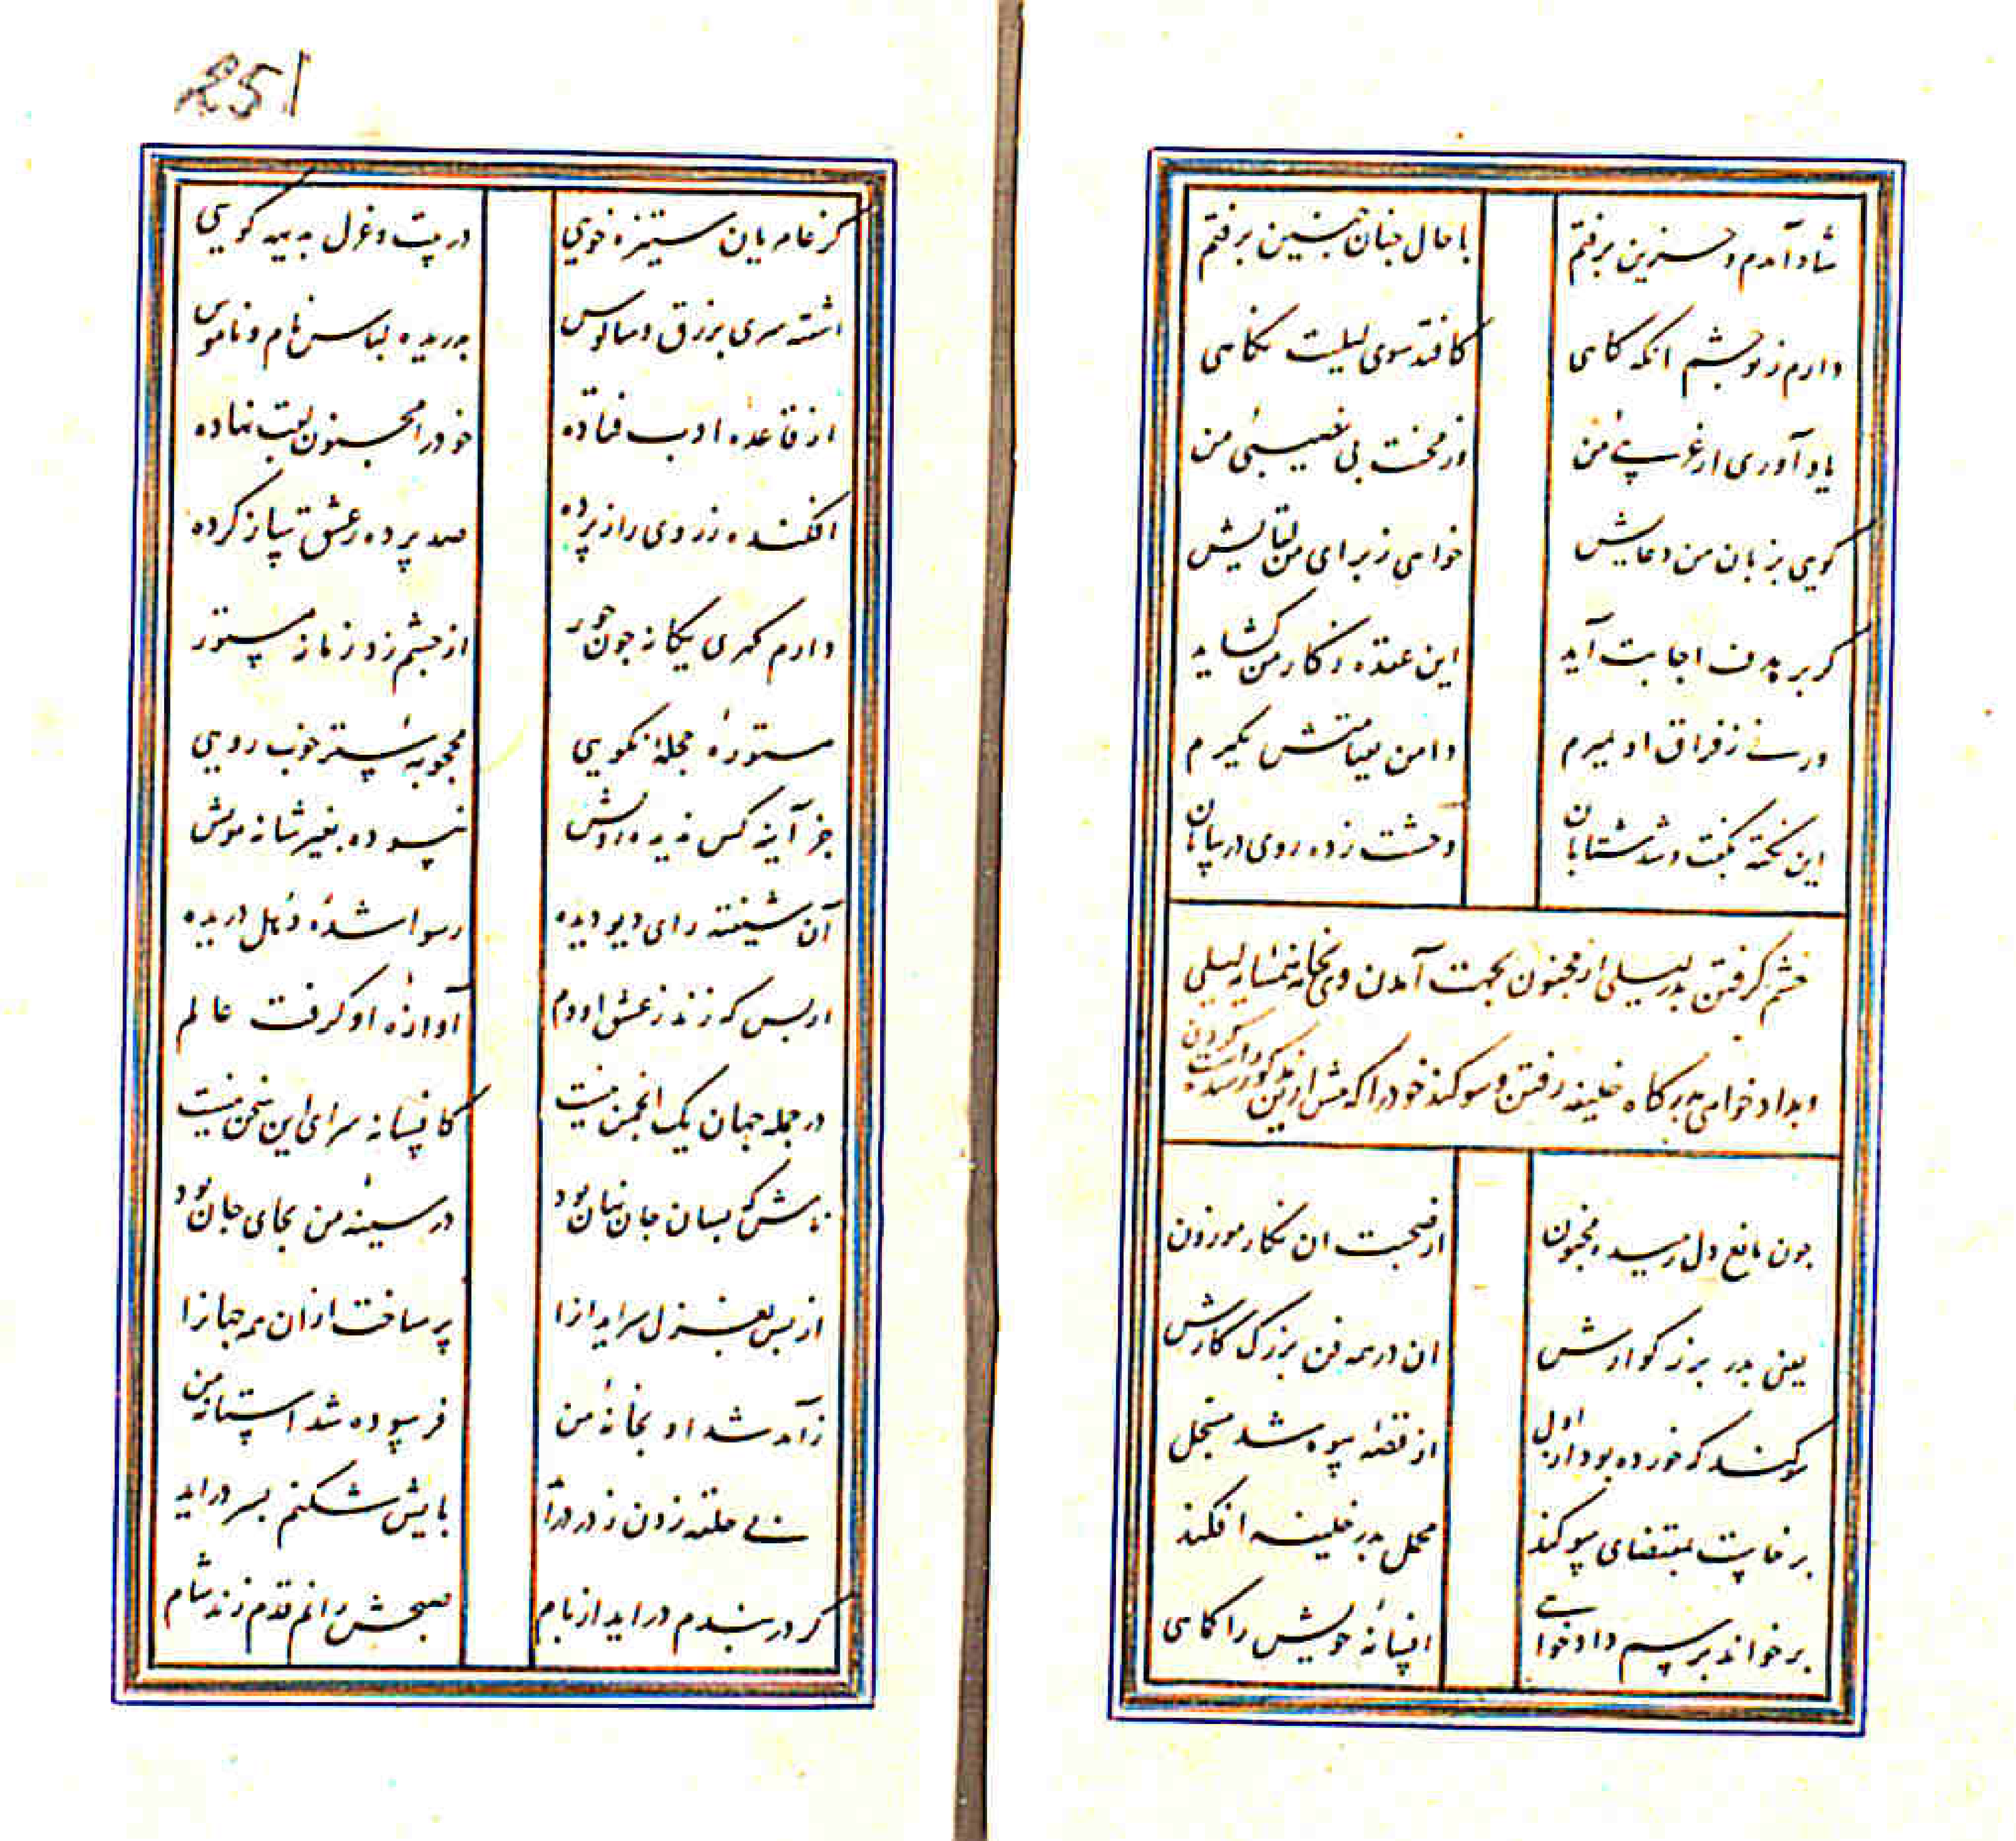 251
شاد آمدم و حزین برفتم با حال چنان چنین برفتم
دارم ز تو چشم انکه کاهی کافتد سوی لیلیت نکاهی
یاد آوری از غریبیٔ من وز محنت بی نصیبیٔ من
کویی بزبان من دعایش خواهی ز برای من لقایش
کر بر هدف اجابت آید این عقده ز کار من کشاید
ورنی ز فراق او بمیرم دامن بقیامتش بکیرم
این نکته بکفت و شد شتابان وحشت زده روی در بیابان
خشم کرفتن پدر لیلی از مجنون بجهت آمدن وی بخانه همسایه لیلی
و بداد خواهی بدرکاه خلیفه رفتن و سوکند خود را که پیش ازین مذکور شد راست کردن
چون مانع دل رمیده مجنون از صحبت ان نکار موزون
یعنی پدر بزرکوارش ان در همه فن بزرک کارش
سوکند که خورده بود از اول از نقله میوه شد مسجل
برخاست بمقتضای سوکند محمل بدر خلیفه افکند
برخواند برسم دادخواهی افسانهٔ خویش را کماهی
کز عامریان ستیزه خویی در بیت و غزل بدیهه کویی
اشفته سری بزرق و سالوس بدریده لباس نام و ناموس
از قاعدهٔ ادب فتاده خود را مجنون لقب نهاده
افکنده ز روی راز پرده صد پرده ز عشق ساز کرده
دارم کهری یکانه چون حور از چشم زد زمانه مستور
مستورهٔ حجلهٔ نکویی محجوبهٔ ستر خوب رویی
جز آینه کس ندیده رویش نبسوده بغیر شانه مویش
آن شیفته رای دیو دیده رسوا شدهٔ دهل دریده
از بس که زند ز عشق او دم آوازهٔ او کرفت عالم
در جمله جهان یک انجمن نیست کافسانه سرای این سخن نیست
نامش که بسان جان نهان بود در سینهٔ من بجای جان بود
از بس بغزل سراید انرا پر ساخت از ان همه جهانرا
ز آمد شد او بخانهٔ من فرسوده شد استانهٔ من
نی حلقه زدن ز در دراید پایش شکنم بسر دراید
کر در بندم دراید از بام صبحش رانم قدم زند شام